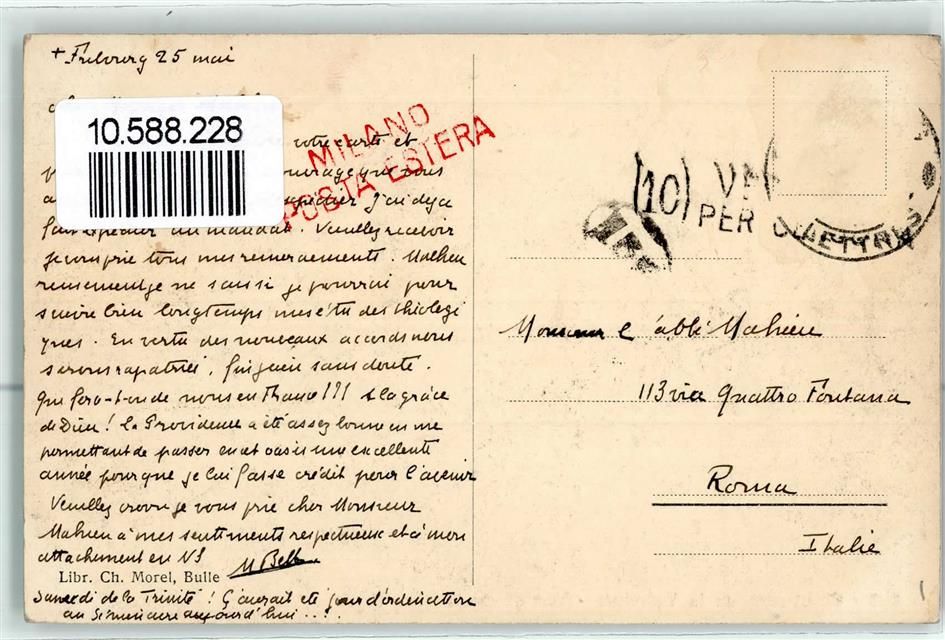 + Fribourg 25 mai
10.588.228
votre carte et
courage que vous
expédier j'ai déjà
fait expédier un mandat. Veuillez recevoir
je vous prie tous mes remerciements. Malheu
reusement je ne sais si je pourrai pour
suivre bien longtemps mes études théologi
ques. En vertu des nouveaux accords nous
serons rapatriés, fin juin sans doute.
Que fera-t-on de nous en France!!! A la grâce
de Dieu! La Providence a été assez bonne en me
permettant de passer en cet oasis une excellente
année pour que je lui fasse crédit pour l'avenir
Veuillez croire je vous prie cher Monsieur
Mahieu à mes sentiments respectueux et à mon
attachement en NS
M Bell
Libr. Ch. Morel, Bulle
Samedi de la Trinité! Ç'aurait été jour d'ordination
au Séminaire aujourd'hui...!
MILANO
POSTA ESTERA
(10)
PER
Monsieur l'abbé Mahieu
113 via Quattro Fontana
Roma
Italie